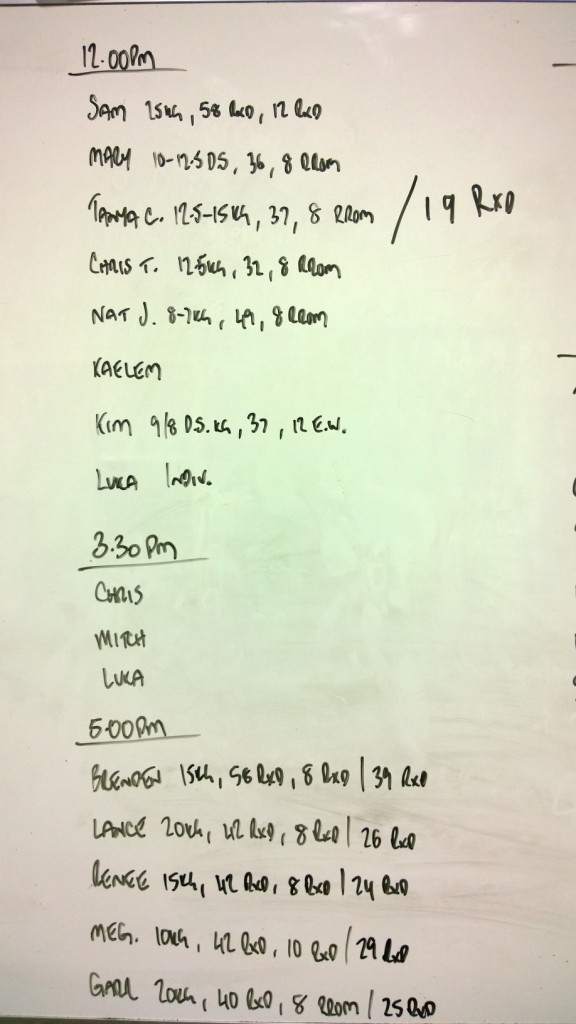 12.00pm
SAM 25KG, 58 RXD, 12 RXD
MARY 10-12.5 DS, 36, 8 RROM
TANYA C. 12.5-15KG, 37, 8 RROM / 19 RXD
CHRIS T. 12.5KG, 32, 8 RROM
NAT J. 8-7KG, 49, 8 RROM
KAELEM
KIM 9/8 D.S. KG, 37, 12 E.W.
LUKA INDIV.
3.30pm
CHRIS
MITCH
LUKA
5.00pm
BRENDEN 15KG, 58 RXD, 8 RXD / 39 RXD
LANCE 20KG, 42 RXD, 8 RXD / 26 RXD
RENEE 15KG, 42 RXD, 8 RXD / 24 RXD
MEG. 10KG, 42 RXD, 10 RXD / 29 RXD
20KG, 40 RXD, 8 RROM / 25 RXD